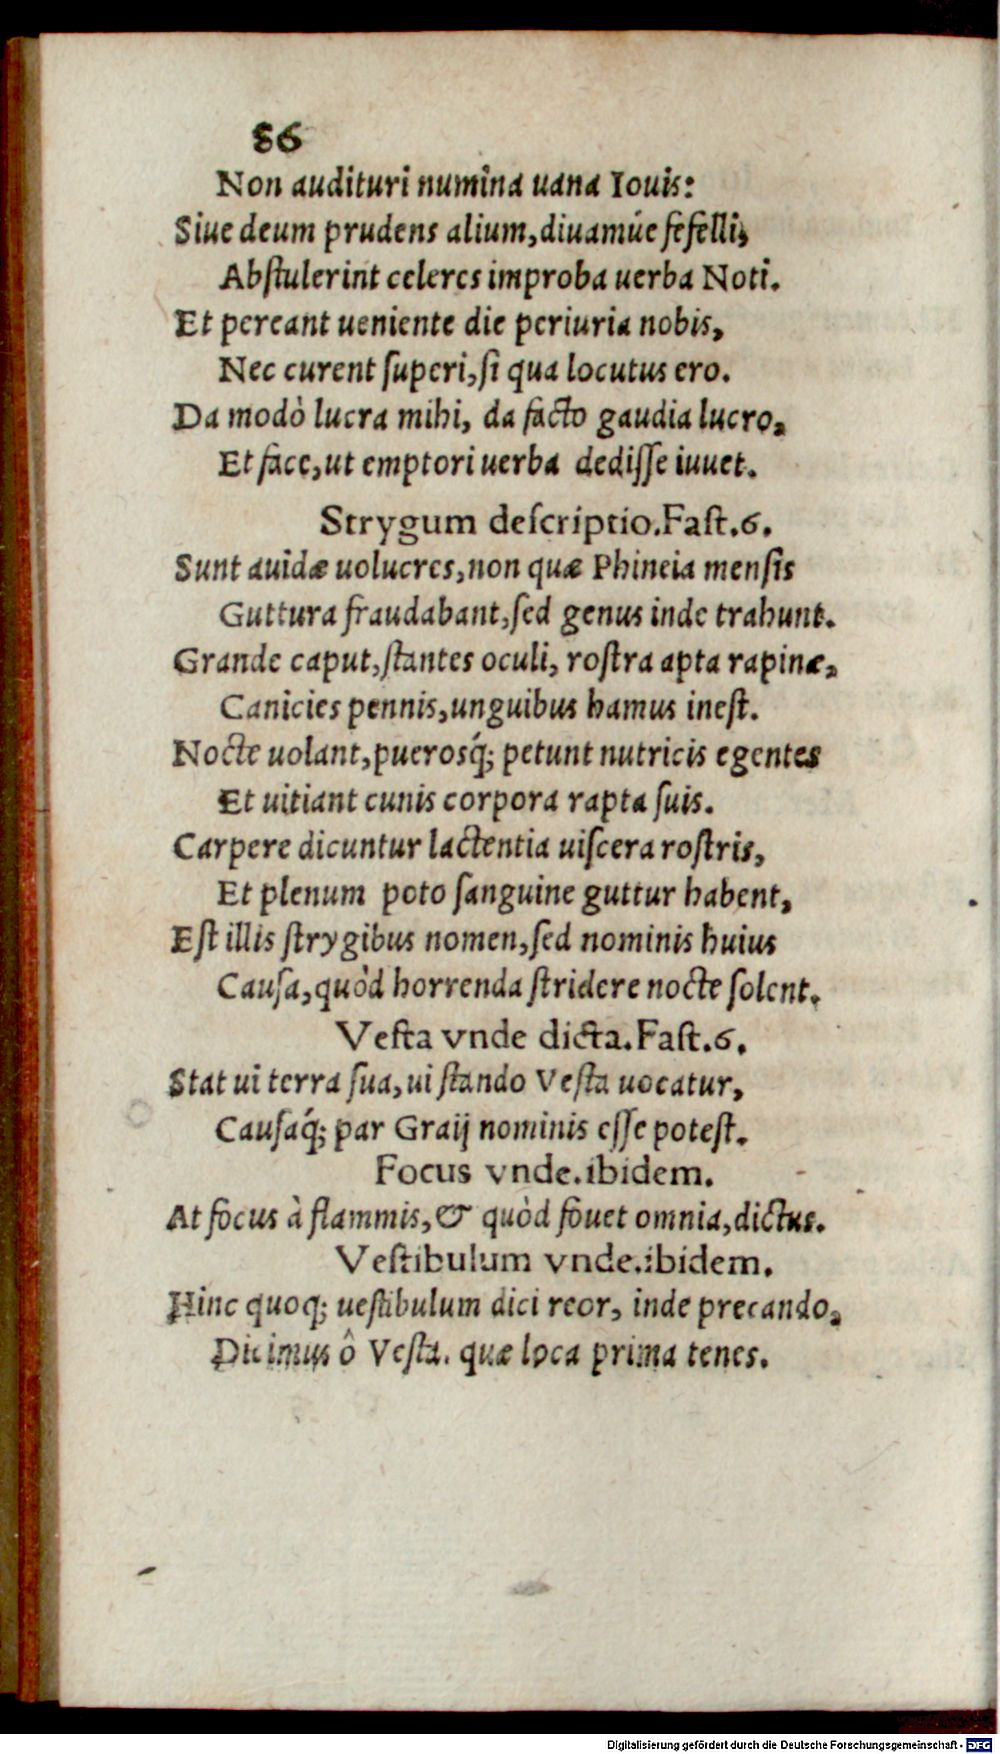 86
Non audituri numina uana Iouis:
Siue deum prudens alium, diuamúe fefelli,
Abſtulerint celeres improba uerba Noti.
Et pereant ueniente die periuria nobis,
Nec curent ſuperi, ſi qua locutus ero.
Da modò lucra mihi, da facto gaudia lucro,
Et face, ut emptori uerba dediſſe iuuet.
Strygum deſcriptio. Faſt. 6.
Sunt auidæ uolucres, non quæ Phineia menſis
Guttura fraudabant, ſed genus inde trahunt.
Grande caput, ſtantes oculi, roſtra apta rapinæ,
Canicies pennis, unguibus hamus ineſt.
Nocte uolant, puerosq́; petunt nutricis egentes
Et uitiant cunis corpora rapta ſuis.
Carpere dicuntur lactentia uiſcera roſtris,
Et plenum poto ſanguine guttur habent,
Eſt illis ſtrygibus nomen, ſed nominis huius
Cauſa, quòd horrenda ſtridere nocte ſolent.
Veſta vnde dicta. Faſt. 6.
Stat ui terra ſua, ui ſtando Veſta uocatur,
Cauſaq́; par Graij nominis eſſe poteſt.
Focus vnde. ibidem.
At focus à flammis, & quòd fouet omnia, dictus.
Veſtibulum vnde. ibidem.
Hinc quoq; ueſtibulum dici reor, inde precando,
Dicimus ô Veſta. quæ loca prima tenes.
Digitalisierung gefördert durch die Deutsche Forschungsgemeinschaft - DFG